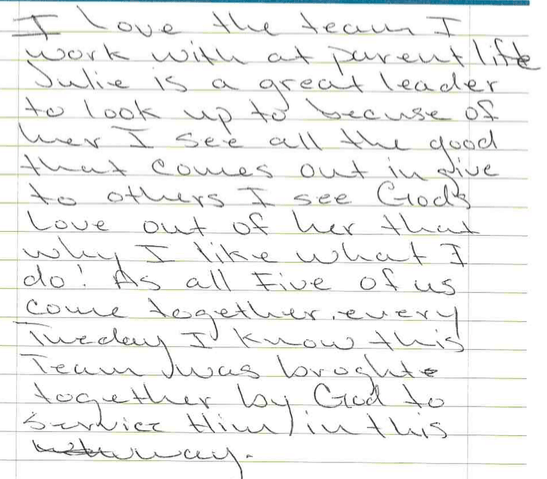 I love the team I
work with at parent life
Julie is a great leader
to look up to becuse of
her I see all the good
that comes out in give
to others I see God's
Love out of her that
why I like what I
do! As all Five of us
come together, every
Tuesday I know this
Team was broghte
together by God to
Service Him in this
way.